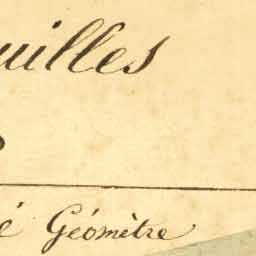 uilles
é Géomètre